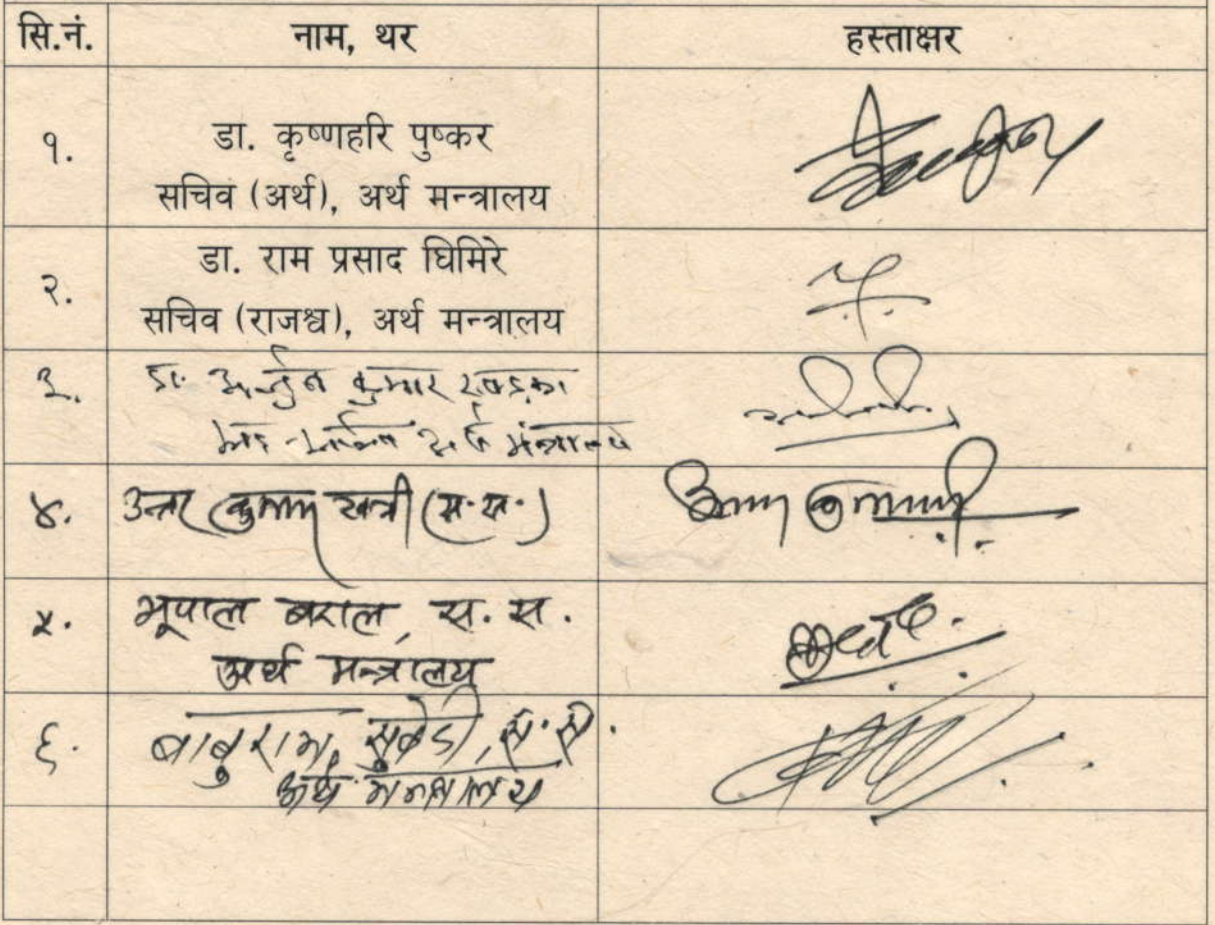 सि.नं. नाम, थर हस्ताक्षर
१. डा. कृष्णहरि पुष्कर
सचिव (अर्थ), अर्थ मन्त्रालय
२. डा. राम प्रसाद घिमिरे
सचिव (राजश्व), अर्थ मन्त्रालय
३. डा. अर्जुन कुमार खड्का
अर्थ मंत्रालय
४. उत्तर कुमार खत्री (स.स.)
५. भूपाल बराल, स. स.
अर्थ मन्त्रालय
६. बाबुराम सुवेदी, स.स.
अर्थ मन्त्रालय